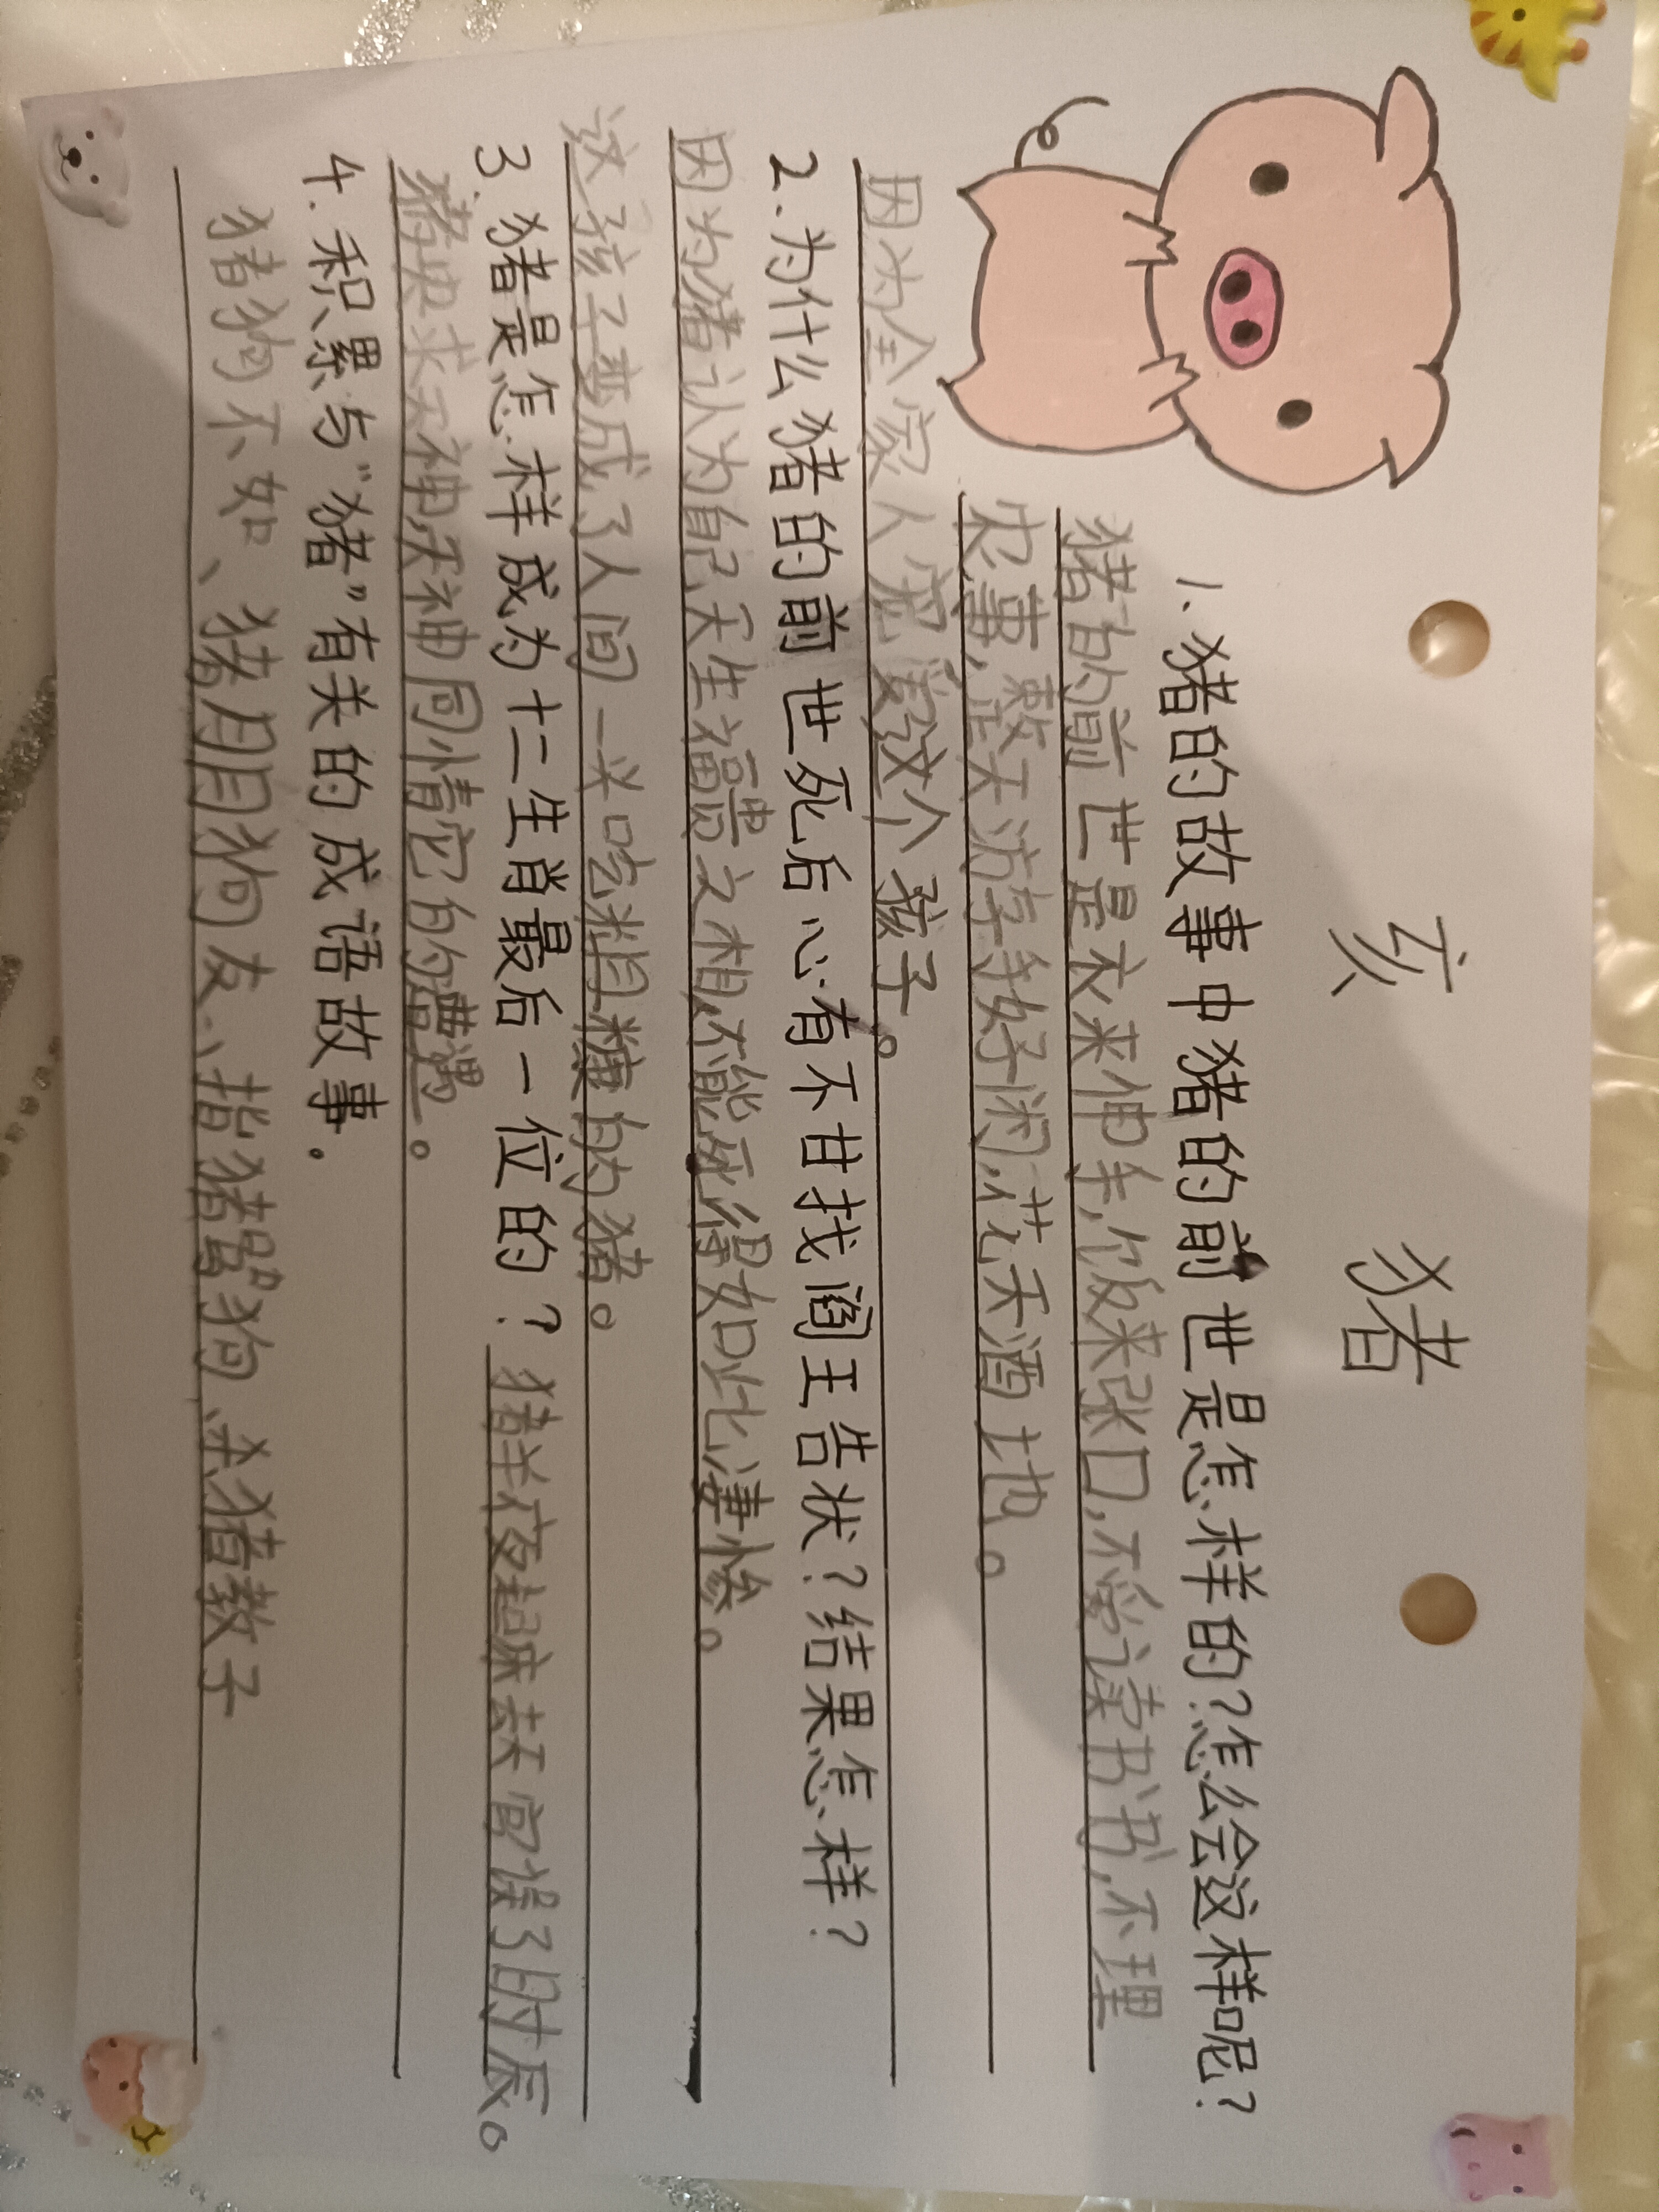 亥 猪
1、猪的故事中猪的前世是怎样的?怎么会这样呢?
猪的前世是衣来伸手,饭来张口,不爱读书书,不理
农事,整天游手好闲,花天酒地。
因为全家人宠爱这个孩子。
2.为什么猪的前世死后心有不甘找阎王告状?结果怎样?
因为猪认为自己天生福贵之相,不能死得如此凄惨。
这孩子变成了人间一头吃粗糠的猪。
3.猪是怎样成为十二生肖最后一位的?猪半夜起床去天宫误了时辰。
猪央求天神,天神同情它的遭遇。
4.积累与"猪"有关的成语故事.
猪狗不如、猪朋狗友、指猪骂狗、杀猪教子